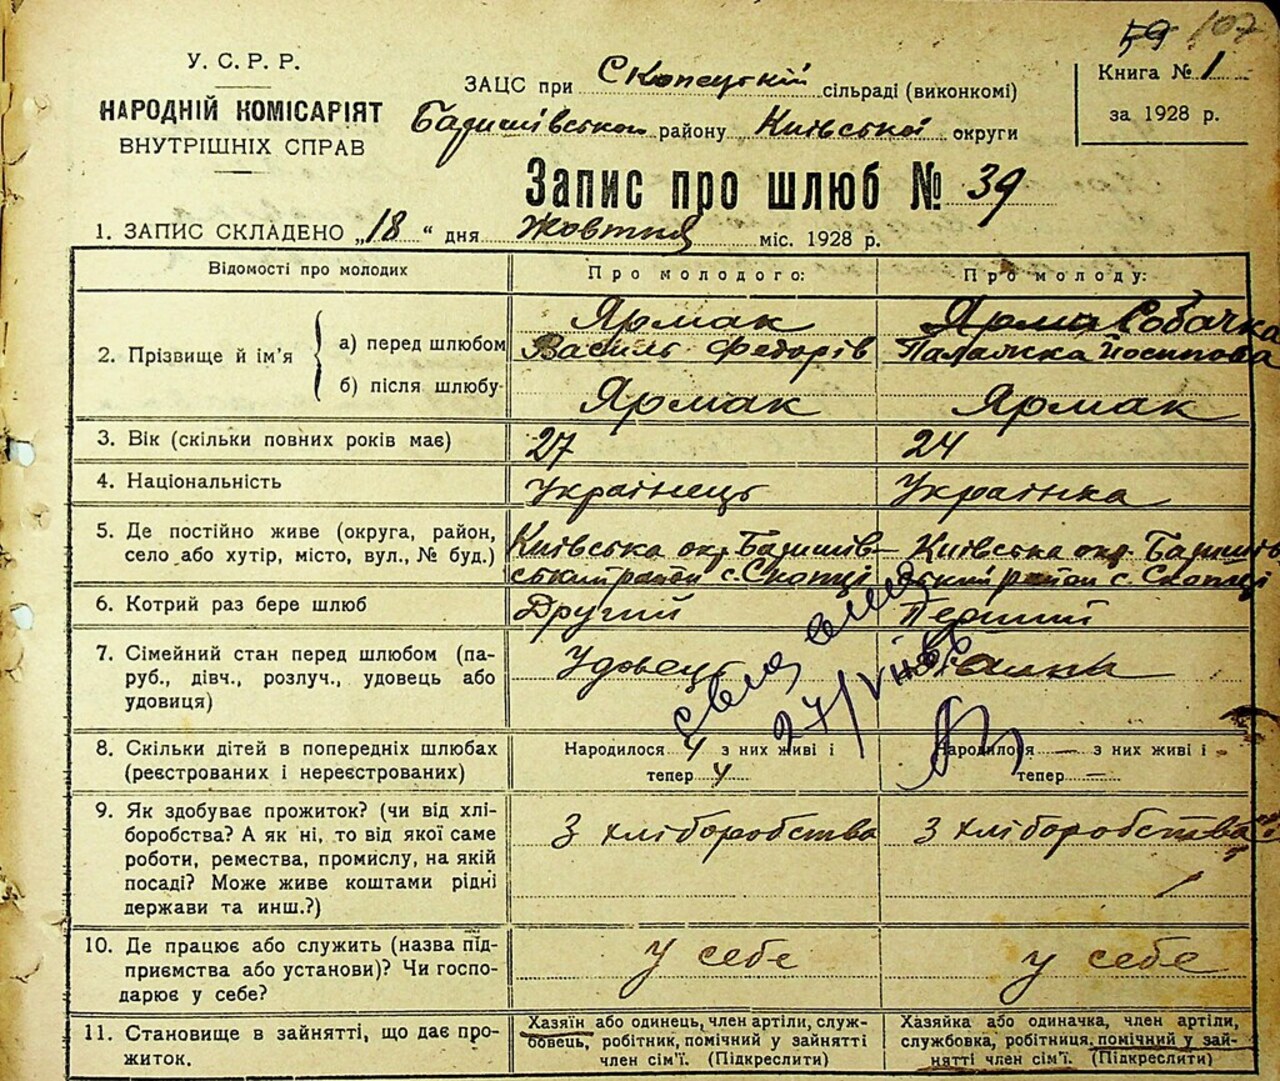 59 107
У. С. Р. Р.
НАРОДНІЙ КОМІСАРІЯТ
ВНУТРІШНІХ СПРАВ
ЗАЦС при Скопецькій сільраді (виконкомі)
Баришівськом району Київської округи
Книга № 1
за 1928 р.
Запис про шлюб № 39
1. ЗАПИС СКЛАДЕНО „18“ дня Жовтня міс. 1928 р.
Відомості про молодих
Про молодого:
Про молоду:
2. Прізвище й ім'я
а) перед шлюбом
Ярмак
Василь Федорів
Ярма Собачка
Палажка Йосипова
б) після шлюбу
Ярмак
Ярмак
3. Вік (скільки повних років має)
27
24
4. Національність
Українець
Українка
5. Де постійно живе (округа, район,
село або хутір, місто, вул., № буд.)
Київська окр. Баришів-
ський район с. Скопці
Київська окр. Баришів
ський район с. Скопці
6. Котрий раз бере шлюб
Другий
Перший
7. Сімейний стан перед шлюбом (па-
руб., дівч., розлуч., удовець або
удовиця)
Удовець
27/V
8. Скільки дітей в попередніх шлюбах
(реєстрованих і нереєстрованих)
Народилося 4 з них живі і
тепер 4
Народилося — з них живі і
тепер —
9. Як здобуває прожиток? (чи від хлі-
боробства? А як ні, то від якої саме
роботи, ремества, промислу, на якій
посаді? Може живе коштами рідні
держави та инш.?)
З хліборобства
З хліборобства
10. Де працює або служить (назва під-
приємства або установи)? Чи госпо-
дарює у себе?
у себе
у себе
11. Становище в зайнятті, що дає про-
житок.
Хазяїн або одинець, член артілі, служ-
бовець, робітник, помічний у зайнятті
член сім'ї. (Підкреслити)
Хазяйка або одиначка, член артілі,
службовка, робітниця, помічний у зай-
нятті член сім'ї. (Підкреслити)